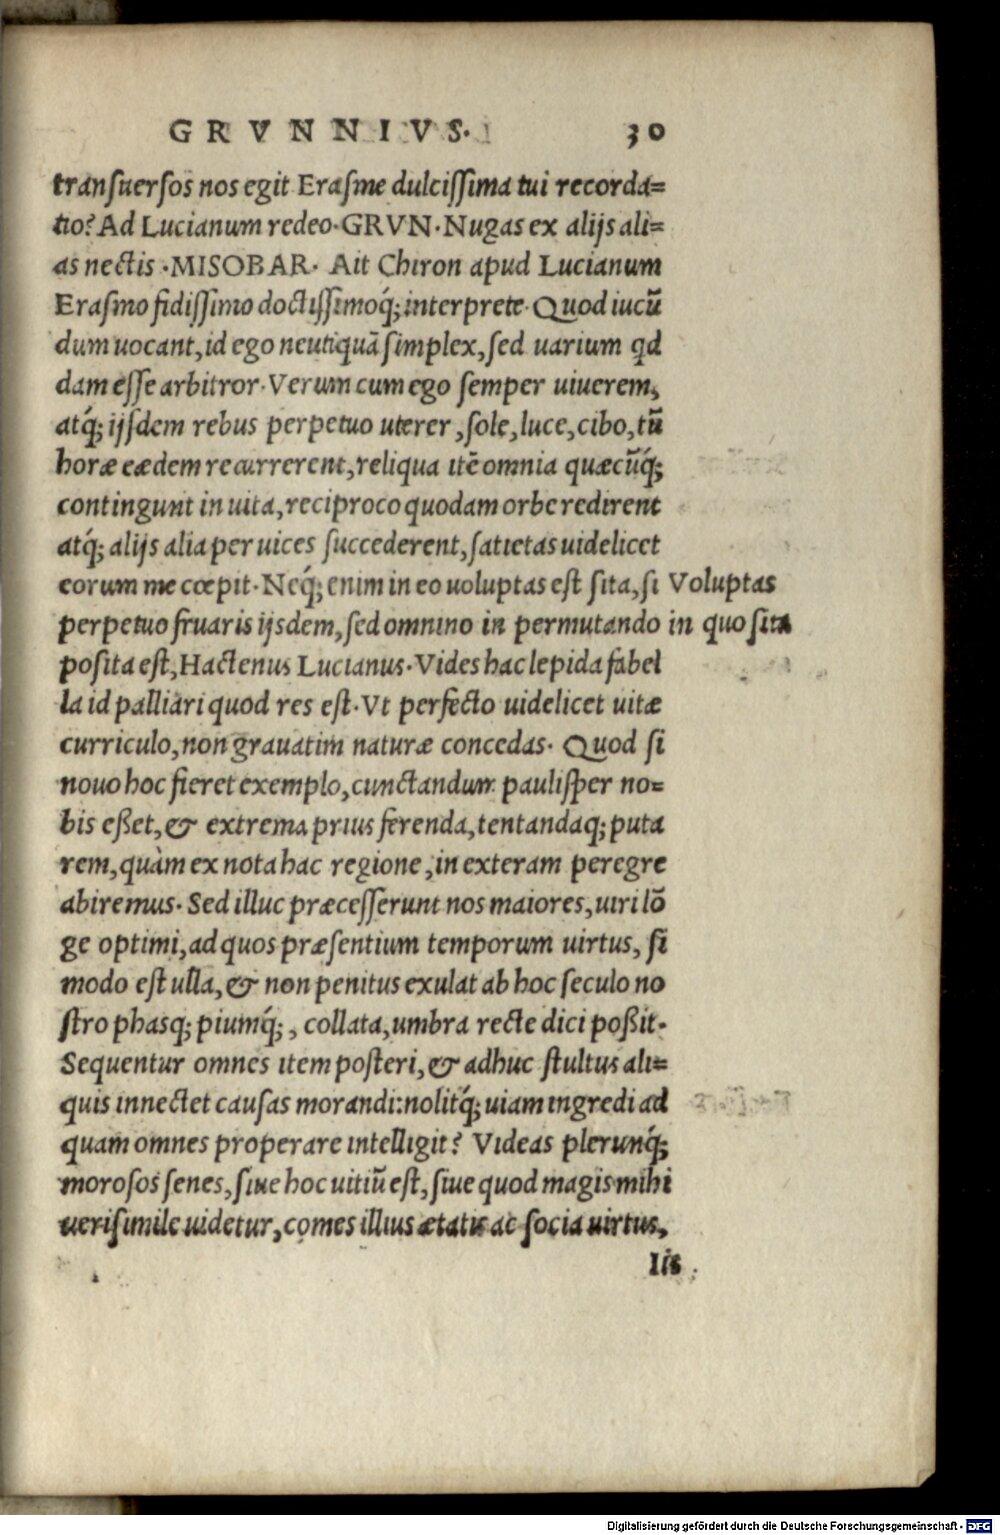 GRVNNIVS. 30
tranſuerſos nos egit Eraſme dulciſſima tui recorda=
tio? Ad Lucianum redeo. GRVN. Nugas ex alijs ali=
as nectis. MISOBAR. Ait Chiron apud Lucianum
Eraſmo fidiſſimo doctiſſimoq́; interprete. Quod iucũ
dum uocant, id ego neutiquā ſimplex, ſed uarium qd
dam eſſe arbitror. Verum cum ego ſemper uiuerem,
atq́; ijſdem rebus perpetuo uterer, ſole, luce, cibo, tū
horæ eædem recurrerent, reliqua itē omnia quæcūq́;
contingunt in uita, reciproco quodam orbe redirent
atq́; alijs alia per uices ſuccederent, ſatietas uidelicet
eorum me cœpit. Neq́; enim in eo uoluptas eſt ſita, ſi Voluptas
perpetuo fruaris ijsdem, ſed omnino in permutando in quo ſita
poſita eſt, Hactenus Lucianus. Vides hac lepida fabel
la id palliari quod res eſt. Vt perfecto uidelicet uitæ
curriculo, non grauatim naturæ concedas. Quod ſi
nouo hoc fieret exemplo, cunctandum pauliſper no=
bis eßet, & extrema prius ferenda, tentandaq; puta
rem, quàm ex nota hac regione, in exteram peregre
abiremus. Sed illuc præceſſerunt nos maiores, uiri lō
ge optimi, ad quos præſentium temporum uirtus, ſi
modo eſt ulla, & non penitus exulat ab hoc ſeculo no
ſtro phasq; piumq́;, collata, umbra recte dici poßit.
Sequentur omnes item poſteri, & adhuc ſtultus ali=
quis innectet cauſas morandi: nolitq́; uiam ingredi ad
quam omnes properare intelligit? Videas plerunq́;
moroſos ſenes, ſiue hoc uitiū eſt, ſiue quod magis mihi
ueriſimile uidetur, comes illius ætatis ac ſocia uirtus,
Iis
Digitalisierung gefördert durch die Deutsche Forschungsgemeinschaft - DFG